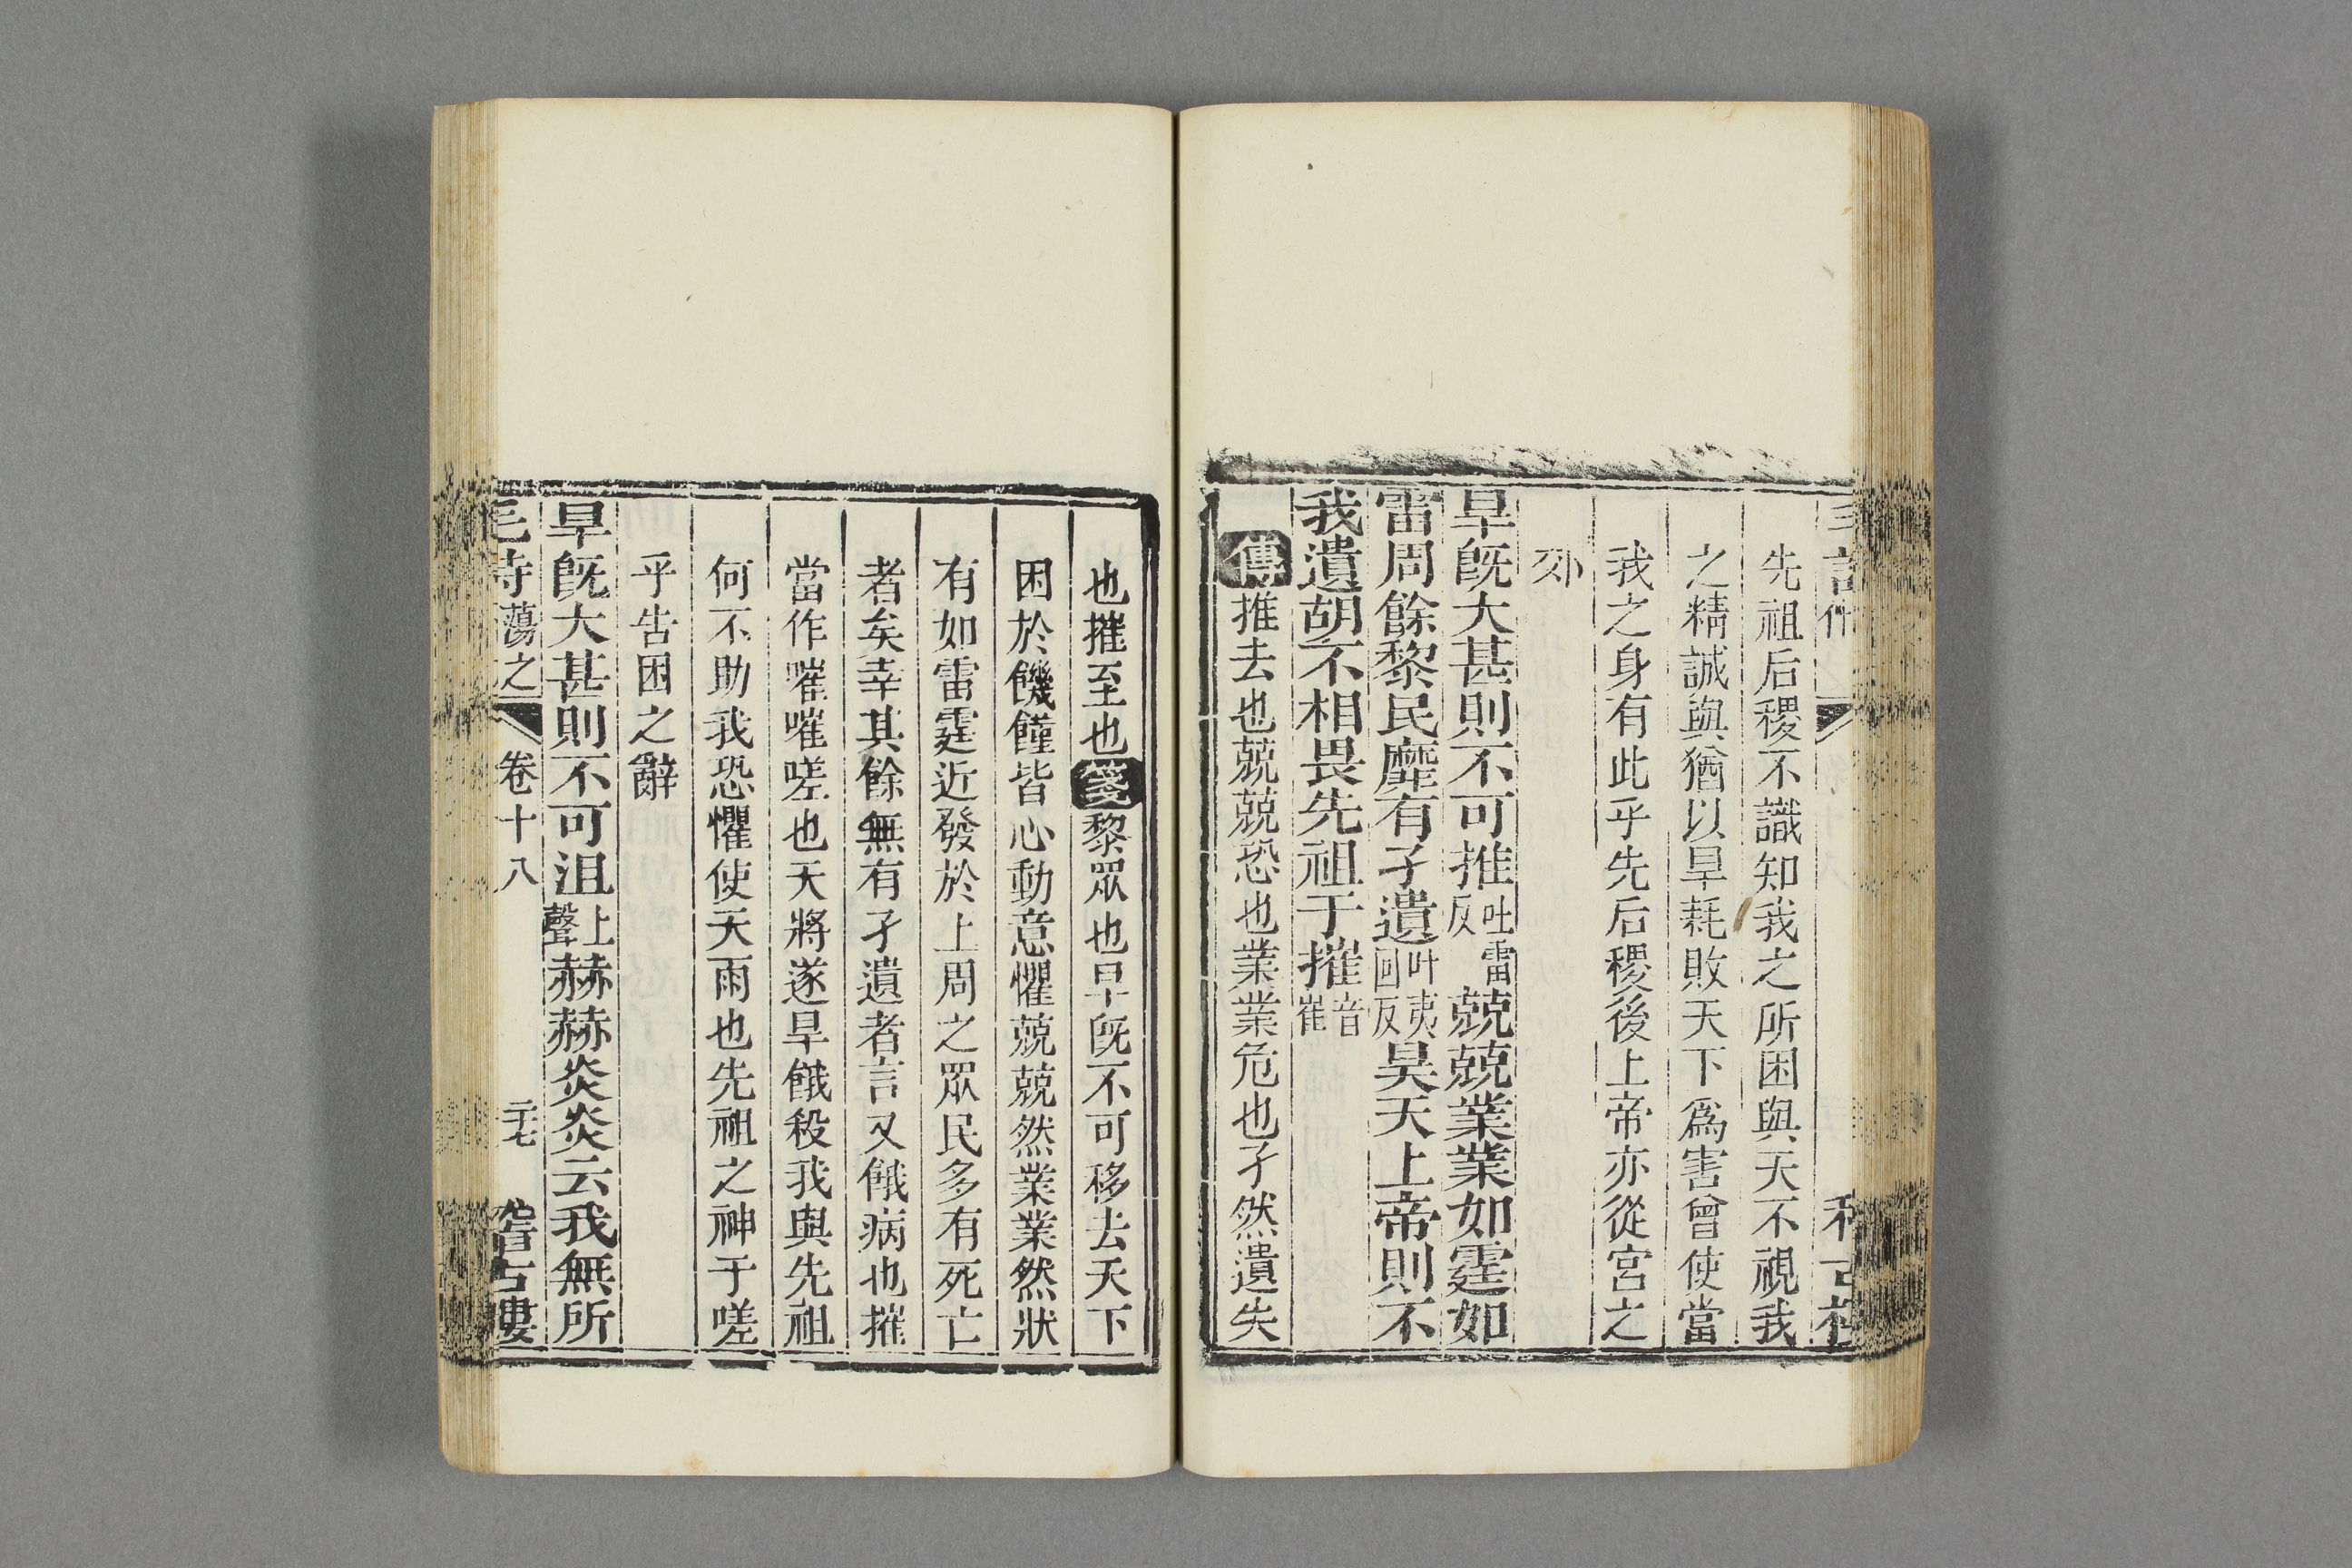 先祖后稷不識知我之所困與天不視我
之精誠與猶以旱耗敗天下爲害曾使當
我之身有此乎先后稷後上帝亦從宮之
郊
旱旣大甚則不可推吐雷反兢兢業業如霆如
雷周餘黎民靡有孑遺叶夷回反昊天上帝則不
我遺胡不相畏先祖于摧音崔
傳推去也兢兢恐也業業危也孑然遺失
也摧至也箋黎眾也旱旣不可移去天下
困於饑饉皆心動意懼兢兢然業業然狀
有如雷霆近發於上周之眾民多有死亡
者矣幸其餘無有孑遺者言又餓病也摧
當作嗺嗺嗟也天將遂旱餓殺我與先祖
何不助我恐懼使天雨也先祖之神于嗟
乎告困之辭
旱旣大甚則不可沮上聲赫赫炎炎云我無所
毛詩蕩之 卷十八 二十七 稽古樓